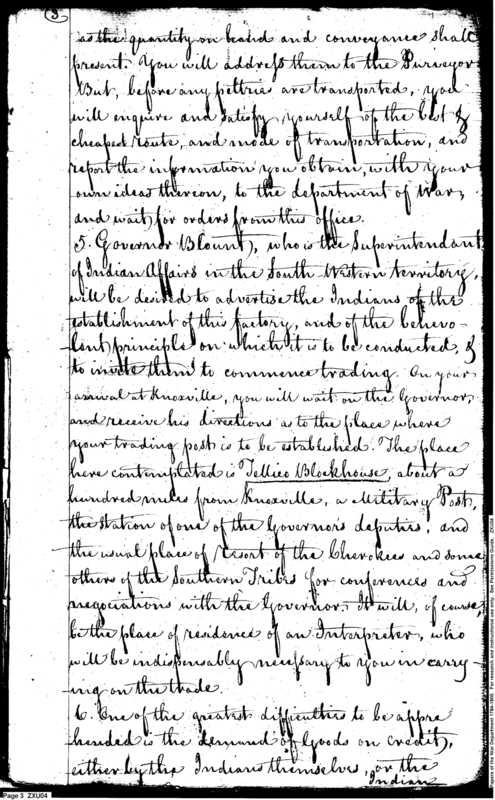 (3
as the quantity on hand and conveyance shall
present. You will address them to the Purveyor
But, before any peltries are transported, you
will enquire and satisfy yourself of the best &
cheapest route, and mode of transportation, and
report the information you obtain, with your
own ideas thereon, to the department of War,
and wait for orders from this office.
5. Governor Blount, who is the Superintendant
of Indian Affairs in the South Western territory,
will be desired to advertise the Indians of the
establishment of this factory, and of the benevo-
lent principle on which it is to be conducted, &
to invite them to commence trading. On your
arrival at Knoxville, you will wait on the Governor,
and receive his directions as to the place where
your trading post is to be established. The place
here contemplated is Tellico Blockhouse, about a
hundred miles from Knoxville, a Military Post,
the station of one of the Governor's deputies, and
the usual place of resort of the Cherokees and some
others of the Southern Tribes for conferences and
negociations with the Governor. It will, of course,
be the place of residence of an Interpreter, who
will be indispensably necessary to you in carry-
ing on the trade.
6. One of the greatest difficulties to be appre
hended is the demand of Goods on credit,
either by the Indians themselves, or the
Indian
Page 3 ZXU04